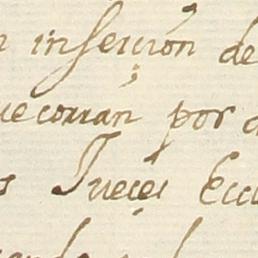 n inserción de
ue corran por
s Jueçes Ecc